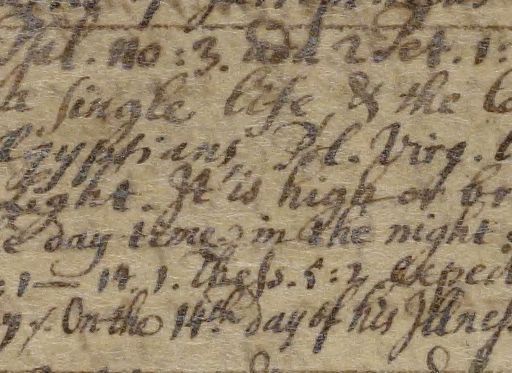 no: 3. 2 Pet. 1:
single life, & the
Egyptians Pol. Virg.
light. It is high or br
day time, in the night
: 1 — 14. 1. Thess. 5: 2. exped
y. On the 14th day of his Illness